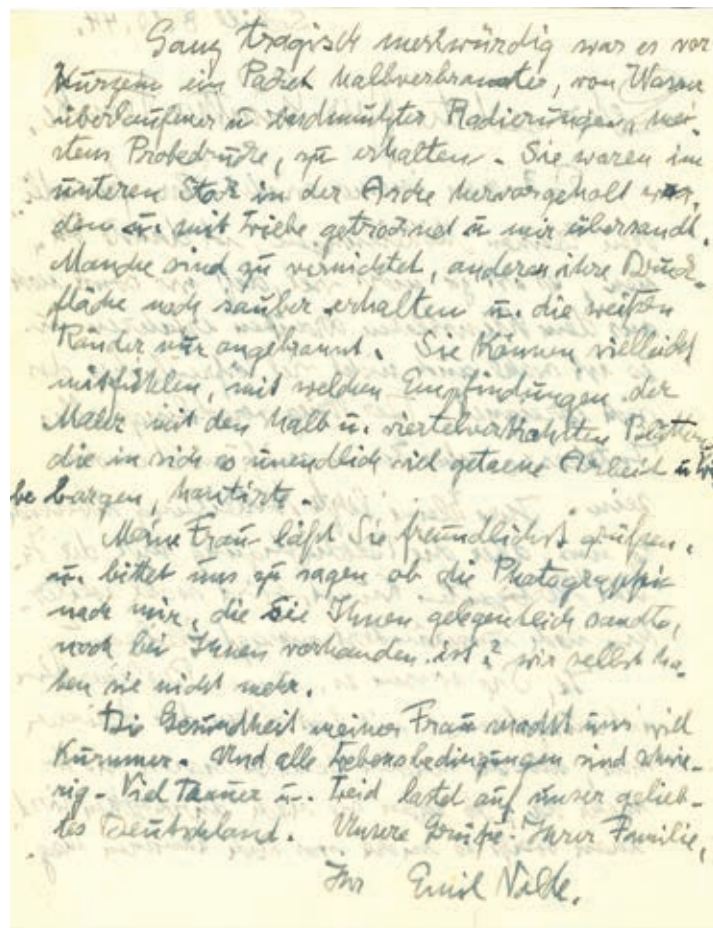 Ganz tragisch merkwürdig war es vor
Kurzem ein Packet halbverbrannter, von Wasser
überlaufener u beschmutzter Radierungen, mei-
stens Probedrucke, zu erhalten. Sie waren im
unteren Stok in der Asche hervorgeholt wor-
den u. mit Liebe getrocknet u mir übersandt.
Manche sind zu vernichtet, anderen ihre Druck-
fläche noch sauber erhalten u. die weißen
Ränder nur angebrannt. Sie können vielleicht
mitfühlen, mit welchen Empfindungen der
Maler mit den halb u. viertelverkohlten Blättern,
die in sich so unendlich viel getaene Arbeit u Lie
be bargen, hantirte.
Meine Frau läßt Sie freundlichst grüßen,
u. bittet uns zu sagen ob die Photographie
nach mir, die sie Ihnen gelegentlich sandte,
noch bei Ihnen vorhanden ist? wir selbst ha-
ben sie nicht mehr.
Die Gesundheit meiner Frau macht uns viel
Kummer. Und alle Lebensbedingungen sind schwie-
rig - Viel Trauer u. Leid lastet auf unser gelieb-
tes Deutschland. Unsere Grüße Ihrer Familie,
Ihr Emil Nolde.